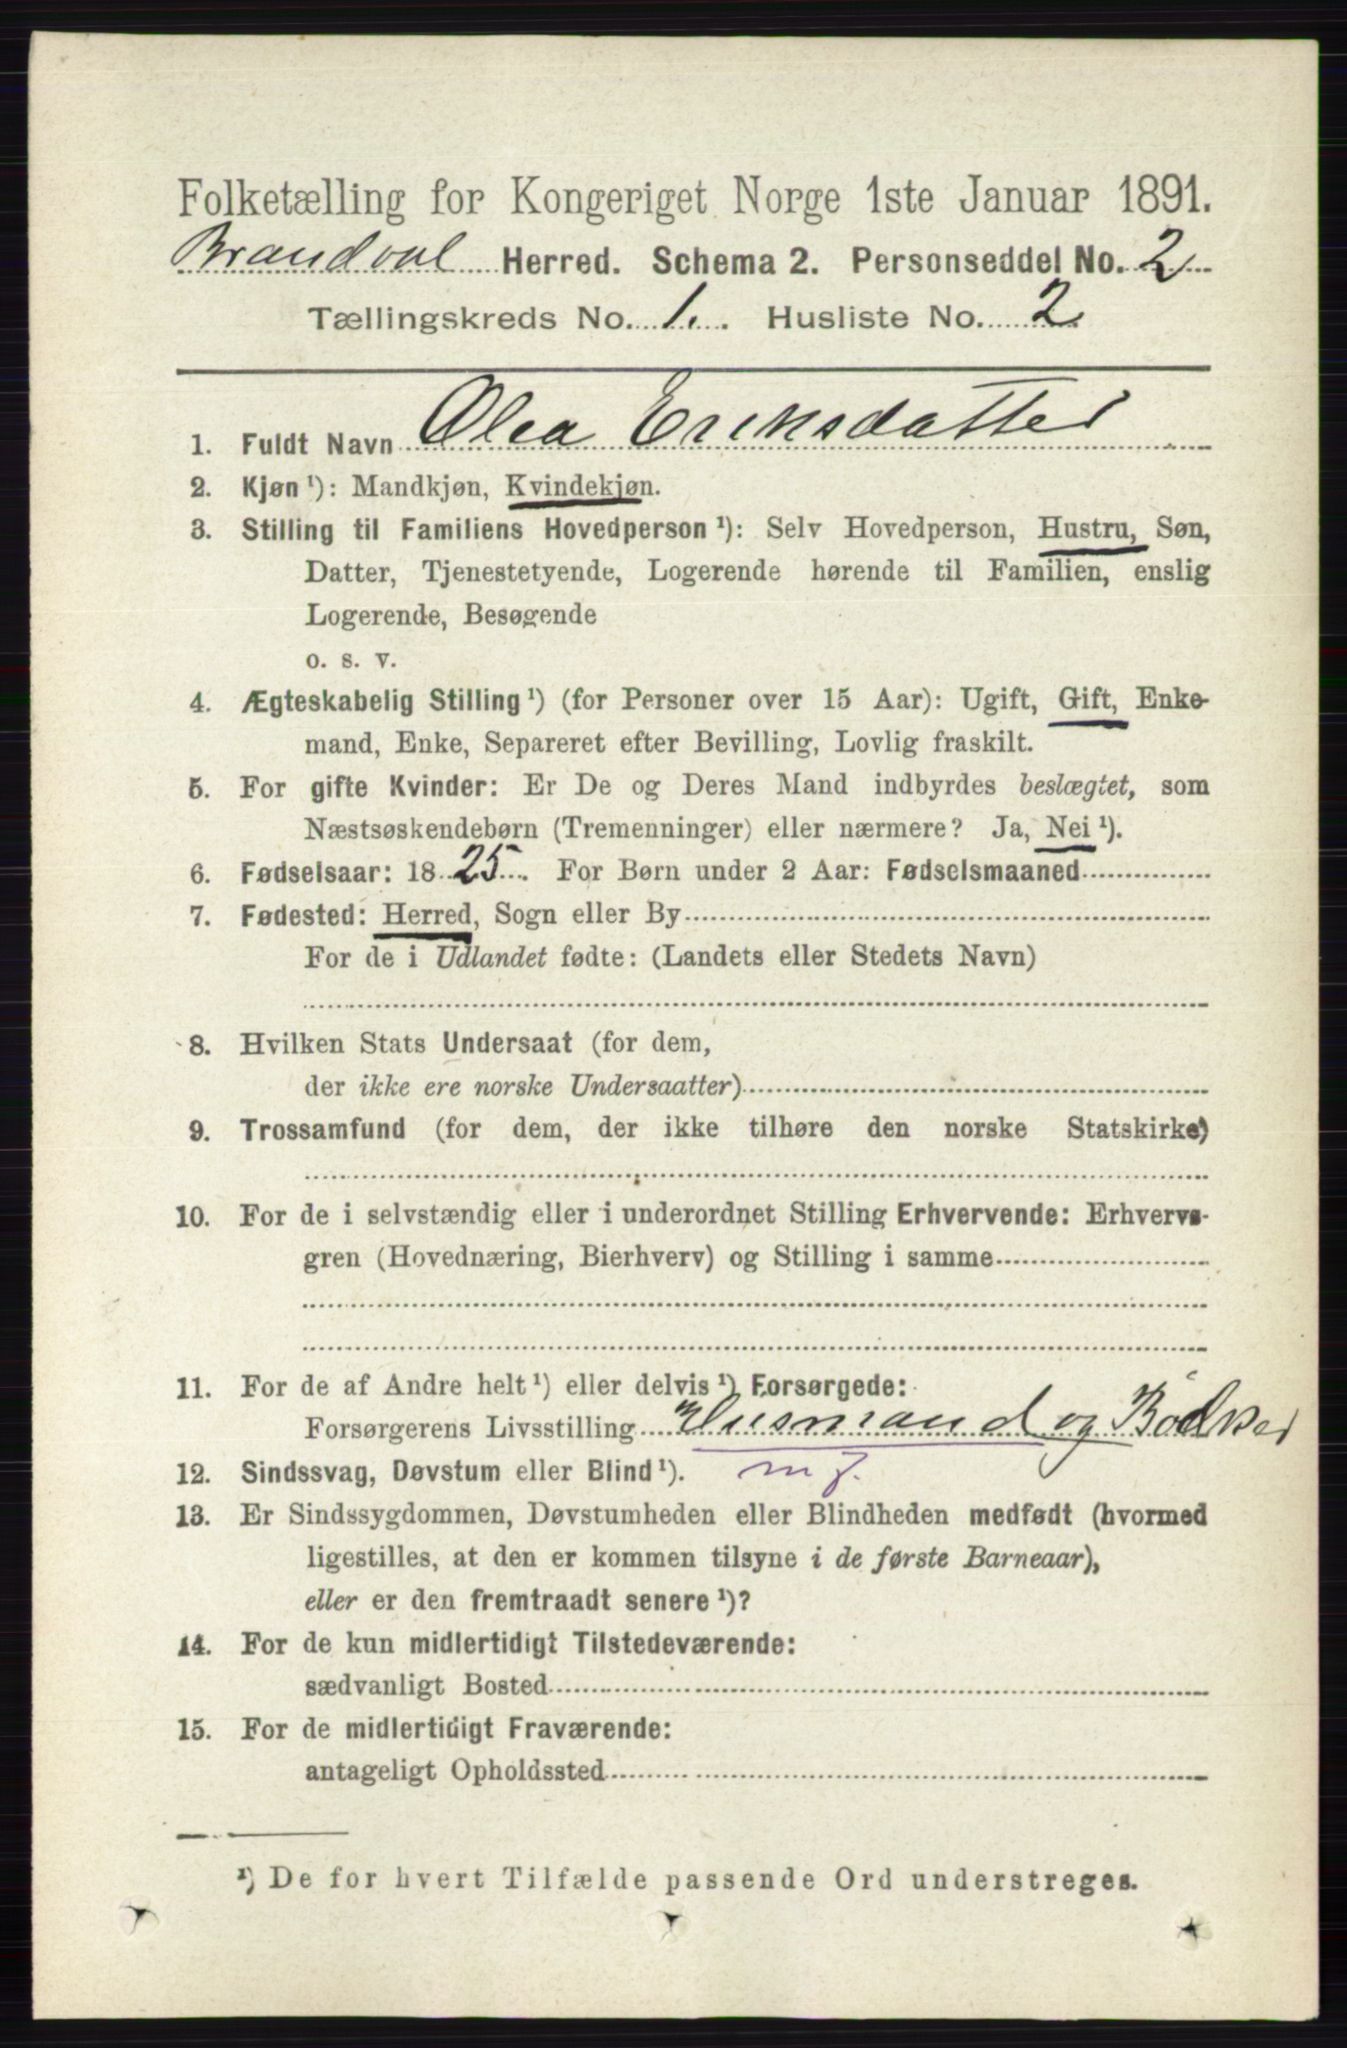 Folketælling for Kongeriget Norge 1ste Januar 1891.
Brandval Herred. Schema 2. Personseddel No. 2
Tællingskreds No. 1. Husliste No. 2
1. Fuldt Navn Olea Eriksdatter
2. Kjøn ¹): Mandkjøn, Kvindekjøn.
3. Stilling til Familiens Hovedperson ¹): Selv Hovedperson, Hustru, Søn,
Datter, Tjenestetyende, Logerende hørende til Familien, enslig
Logerende, Besøgende
o. s. v.
4. Ægteskabelig Stilling ¹) (for Personer over 15 Aar): Ugift, Gift, Enke-
mand, Enke, Separeret efter Bevilling, Lovlig fraskilt.
5. For gifte Kvinder: Er De og Deres Mand indbyrdes beslægtet, som
Næstsøskendebørn (Tremenninger) eller nærmere? Ja, Nei ¹).
6. Fødselsaar: 1825. For Børn under 2 Aar: Fødselsmaaned
7. Fødested: Herred, Sogn eller By
For de i Udlandet fødte: (Landets eller Stedets Navn)
8. Hvilken Stats Undersaat (for dem,
der ikke ere norske Undersaatter)
9. Trossamfund (for dem, der ikke tilhøre den norske Statskirke)
10. For de i selvstændig eller i underordnet Stilling Erhvervende: Erhvervs-
gren (Hovednæring, Bierhverv) og Stilling i samme
11. For de af Andre helt ¹) eller delvis ¹) Forsørgede:
Forsørgerens Livsstilling Husmand og Bødker
12. Sindssvag, Døvstum eller Blind ¹). m j.
13. Er Sindssygdommen, Døvstumheden eller Blindheden medfødt (hvormed
ligestilles, at den er kommen tilsyne i de første Barneaar),
eller er den fremtraadt senere ¹)?
14. For de kun midlertidigt Tilstedeværende:
sædvanligt Bosted
15. For de midlertidigt Fraværende:
antageligt Opholdssted
¹) De for hvert Tilfælde passende Ord understreges.